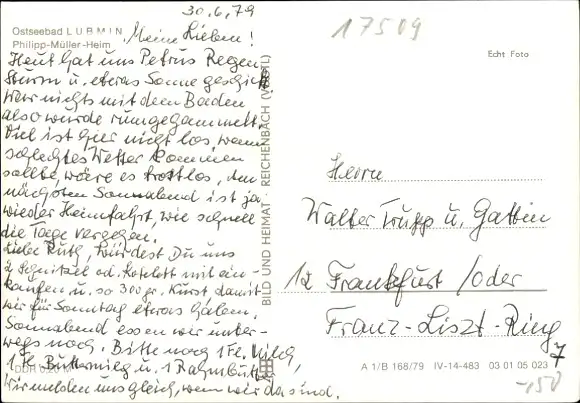 30.6.79
17509
Ostseebad LUBMIN
Philipp-Müller-Heim
Meine Lieben!
Echt Foto
Heut hat uns Petrus Regen,
Sturm u. etwas Sonne geschickt,
War nichts mit dem Baden
also wurde rumgegammelt.
Viel ist hier nicht los, wenn
schlechtes Wetter kommen
sollte, wäre es trostlos, den
nächsten Sonnabend ist ja
wieder Heimfahrt, wie schnell
die Tage vergehen.
Liebe Ruth, würdest Du uns
2 Schnitzel od. Kotelett mit ein-
kaufen u. so 300 gr. Wurst damit
wir für Sonntag etwas haben.
Sonnabend essen wir unter-
wegs noch. Bitte noch 1 Fl. Milch,
1 Fl. Buttermilch u. 1 Rahmbutter
Wir melden uns gleich, wenn wir da sind.
DDR 0,20 M
BILD UND HEIMAT · REICHENBACH (VOGTL)
Herrn
Walter Trupp u. Gattin
12 Frankfurt/Oder
Franz-Liszt-Ring
7
A 1/B 168/79 IV-14-483 03 01 05 023
-150